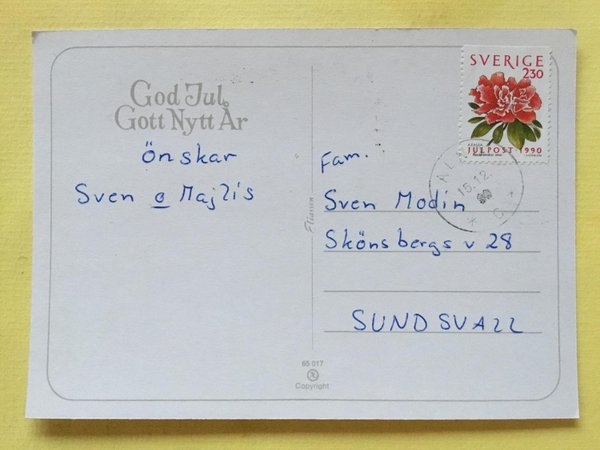 God Jul
Gott Nytt År
önskar
Sven o Majlis
SVERIGE
2.30
AZALEA
JULPOST 1990
15.12
Fam.
Sven Modin
Skönsbergs v 28
SUNDSVALL
65 017
Copyright